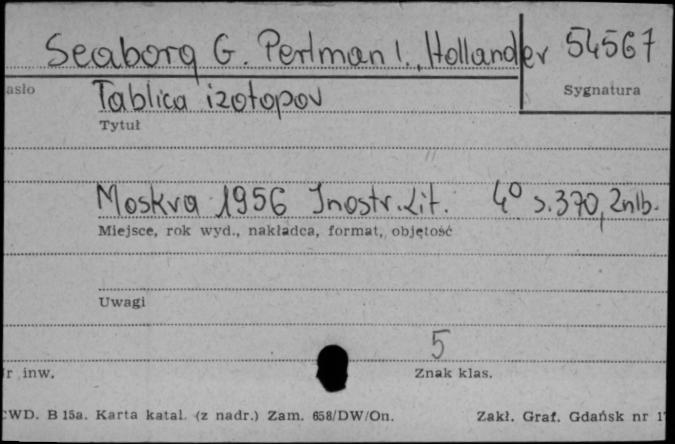 Seaborg G. Perlman I., Hollander 54567
asło Sygnatura
Tablica izotopov
Tytuł
Moskva 1956 Inostr. Lit. 4° s. 370, 2nlb.
Miejsce, rok wyd., nakładca, format, objętość
Uwagi
5
r inw. Znak klas.
CWD. B 15a. Karta katal. (z nadr.) Zam. 658/DW/On. Zakł. Graf. Gdańsk nr 1